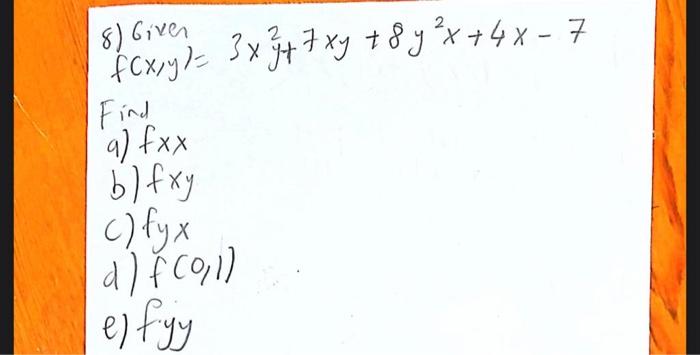 8) Given
f(x,y)= 3x²y+7xy +8y²x+4x-7
Find
a) fxx
b) fxy
c) fyx
d) f(0,1)
e) fyy